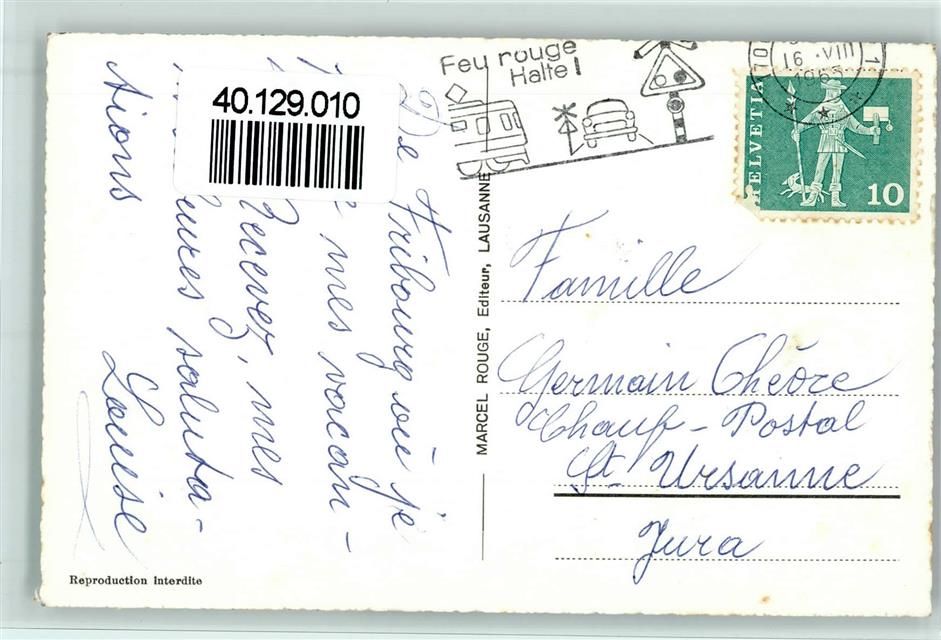 Feu rouge
Halte!
16.VIII
1963
1
HELVETIA
10
40.129.010
De Fribourg où je
mes vacan-
Recevez, mes
saluta-
tions
Louise
MARCEL ROUGE, Editeur, LAUSANNE
Famille
Germain Chèvre
Chauf-Postal
St. Ursanne
Jura
Reproduction interdite